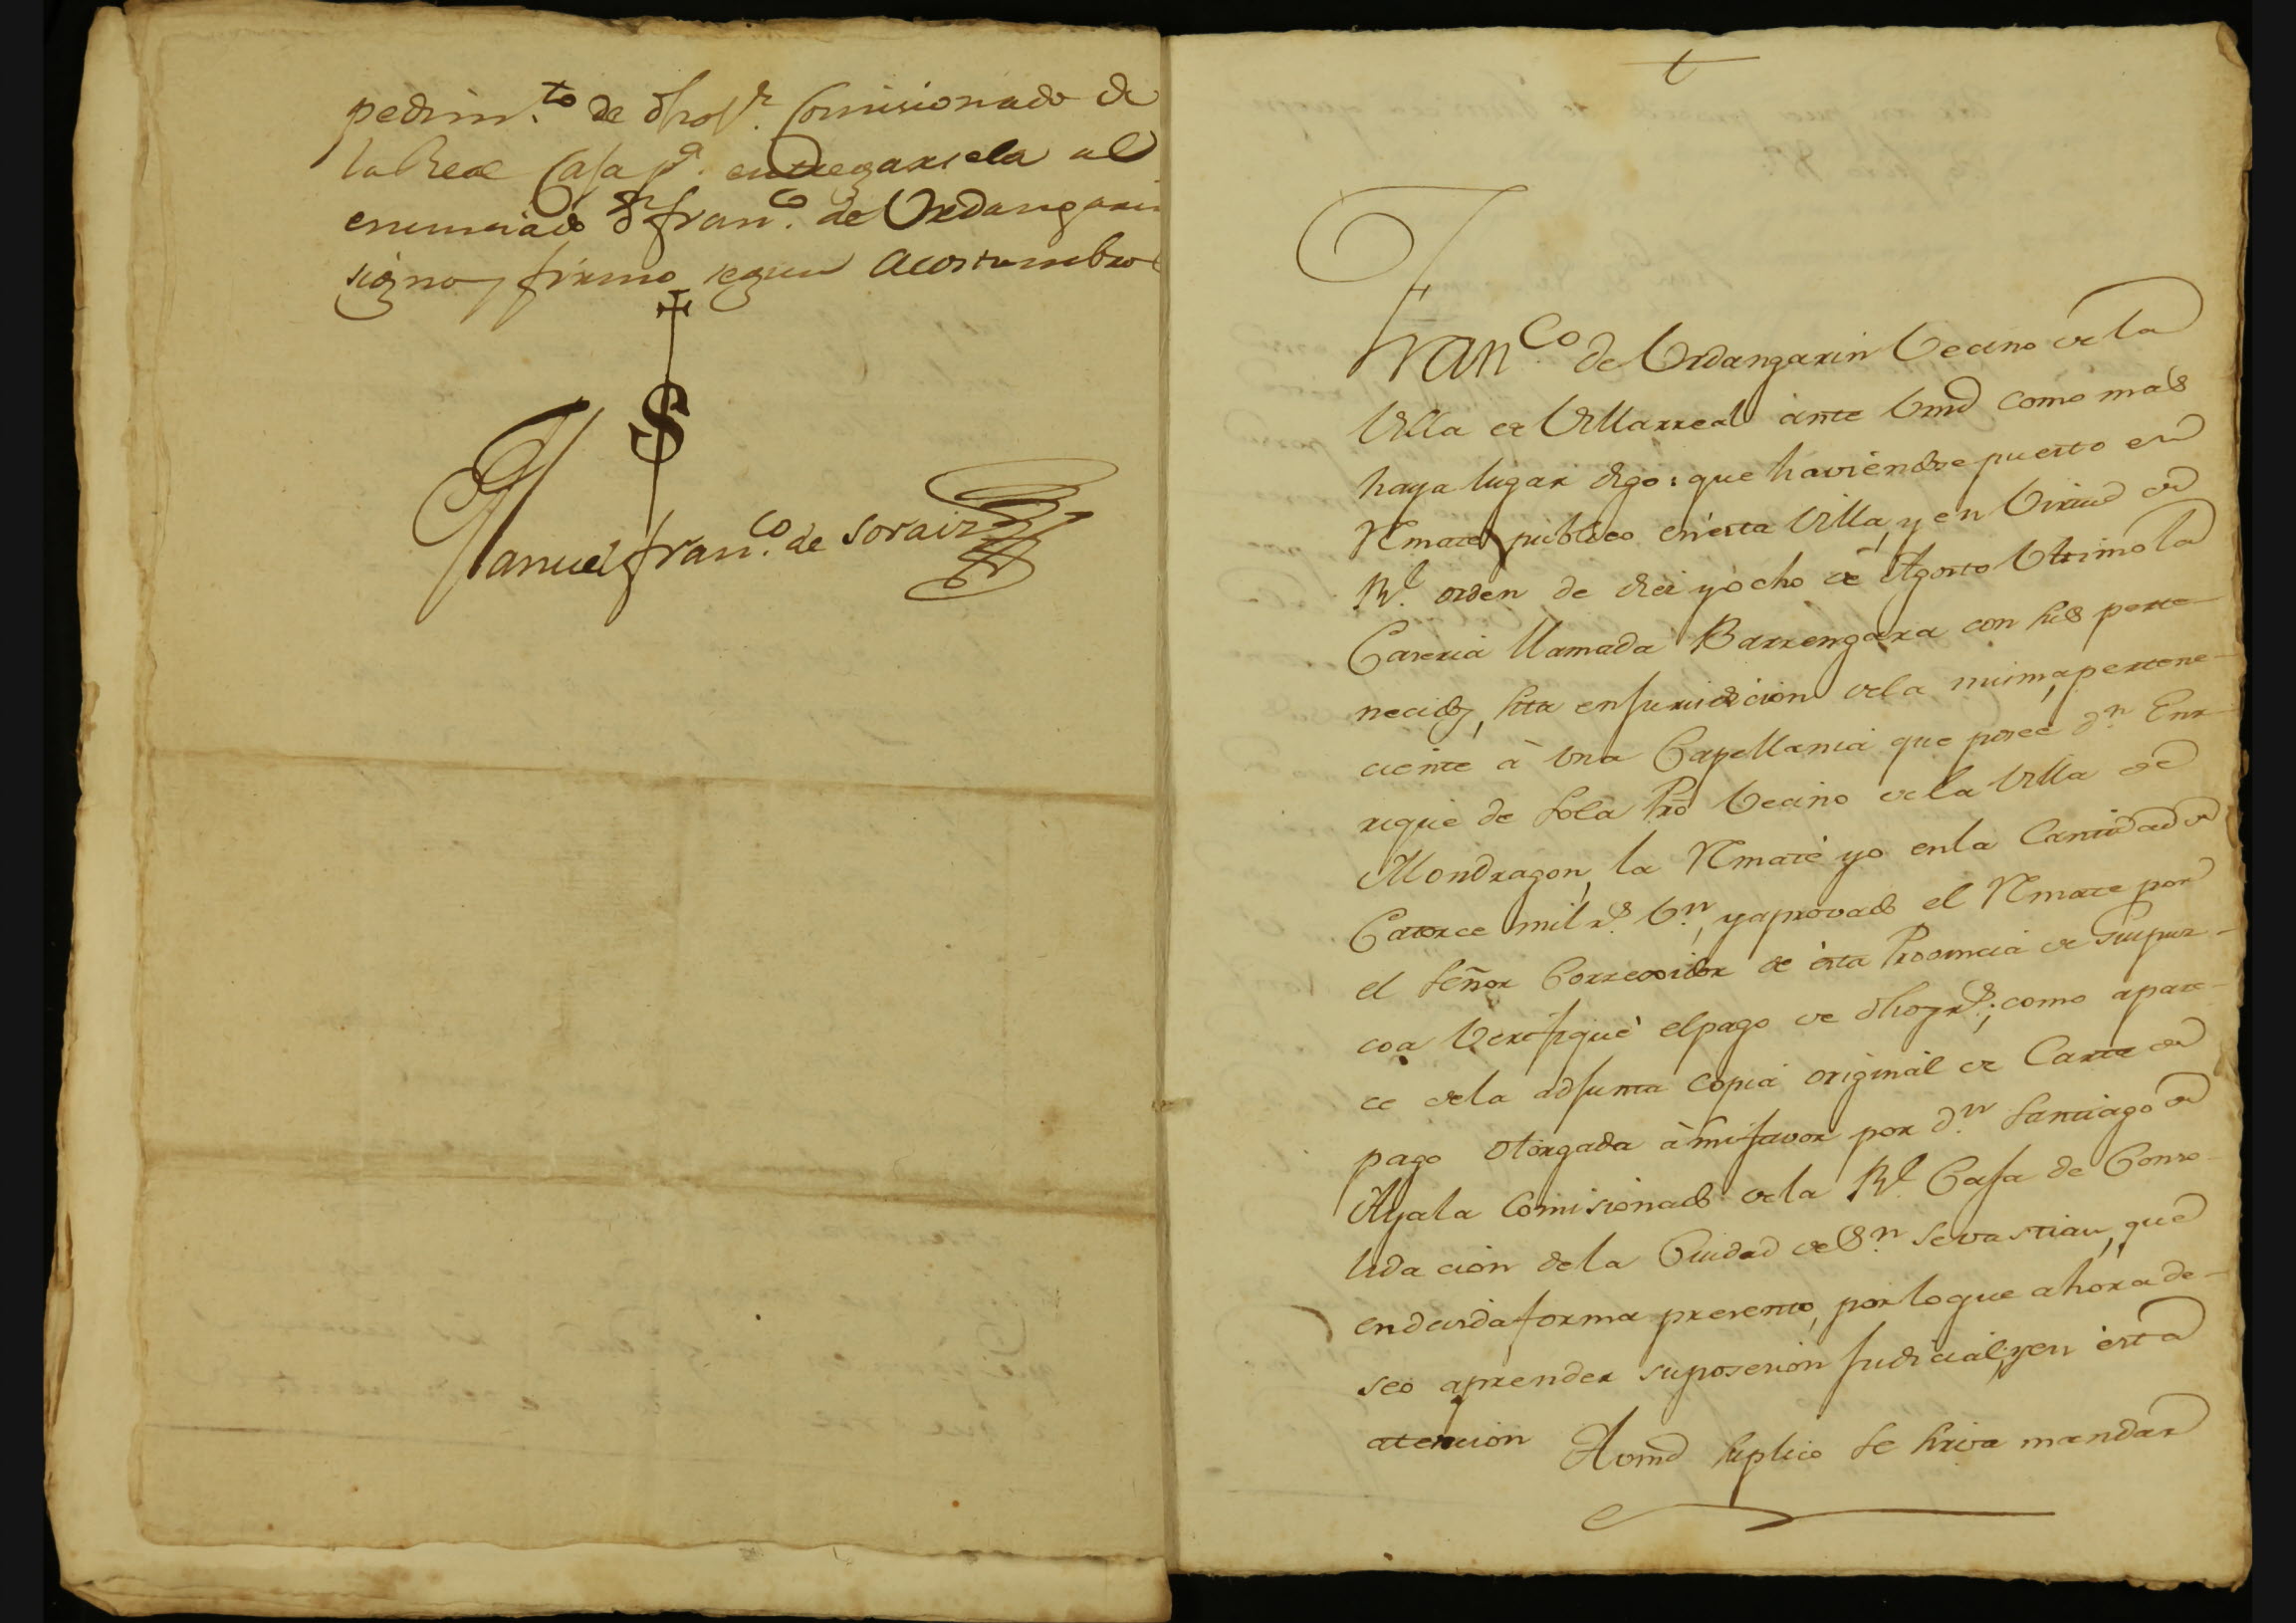 pedim.to de dho S.r Comisionado de
la Real Casa p.a entregarsela al
enunciado D.n Fran.co de Urdangarin
signo y firmo segun acostumbro
S
Manuel Fran.co de Soraiz
Fran.co de Urdangarin Vecino de la
Villa de Villarreal ante Vmd como mas
haya lugar digo: que haviendose puesto en
Remate publico en esta Villa, y en Virtud de
Rl. orden de diez y ocho de Agosto Ultimo la
Caseria llamada Barrengara con sus perte-
necidos, sita en Jurisdicion de la misma, pertene-
ciente à una Capellania que posee D.n Enr-
rique de Sola Pro Vecino de la Villa de
Mondragon, la Rematè yo en la Cantidad de
Catorce mil r.s V.n, y aprovado el Remate por
el Señor Corregidor de esta Provincia de Guipuz-
coa Verifiquè el pago de dhos r.s, como apare-
ce de la adjunta Copia original de Carta de
pago otorgada à mi favor por D.n Santiago de
Ayala Comisionado de la Rl. Casa de Conso-
lidacion de la Ciudad de S.n Sevastian, que
en devida forma presento, por lo que ahora de-
seo aprender su posesion Judicial, y en esta
atencion A Vmd suplico se sirva mandar